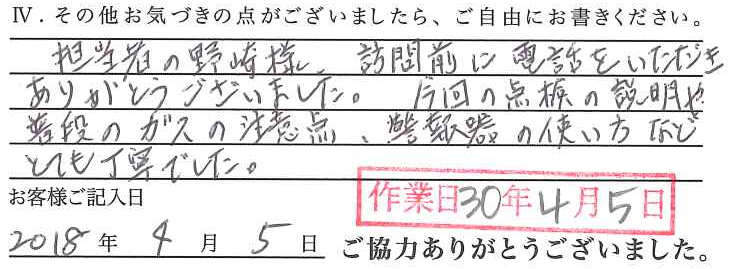 Ⅳ．その他お気づきの点がございましたら、ご自由にお書きください。
担当者の野崎様、訪問前に電話をいただき
ありがとうございました。今回の点検の説明や
普段のガスの注意点、警報器の使い方など
とても丁寧でした。
お客様ご記入日
作業日30年4月5日
2018年4月5日 ご協力ありがとうございました。